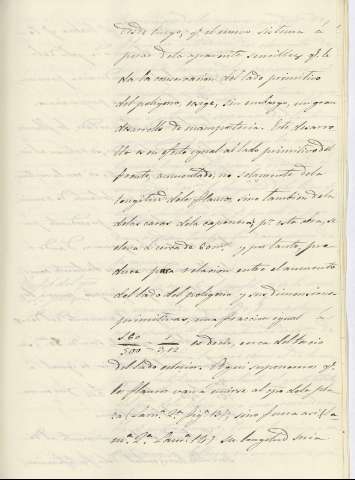 desde luego, qe el nuevo sistema á
pesar de la aparente sencillez qe le
da la conservacion del lado primitivo
del poligono, exige, sin embargo, un gran
desarrollo de mamposteria. Este desarro
llo es en efecto igual al lado primitivo del
frente, aumentado, no solamente de la
longitud de los flancos, sino tambien de la
de las caras de la caponera; pr esta obra, se
eleva á cerca de 60m. y por tanto, pro
duce pa relacion entre el aumento
del lado del poligono y sus dimensiones
primitivas, una fraccion igual á
160/500 = 1/3,12 es decir, cerca del tercio
del lado exterior. Aqui suponemos qe
los flancos van á unirse al eje de la pla
za (Lam. 2a fig. 13), sino fuera asi (La
ma. 2a Lam. 14) su longitud seria